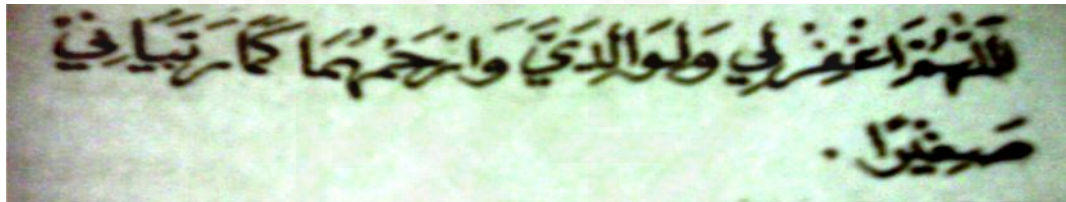 اللَّهُمَّ اغْفِرْ لِي وَلِوَالِدَيَّ وَارْحَمْهُمَا كَمَا رَبَّيَانِيْ
صَغِيْرًا .